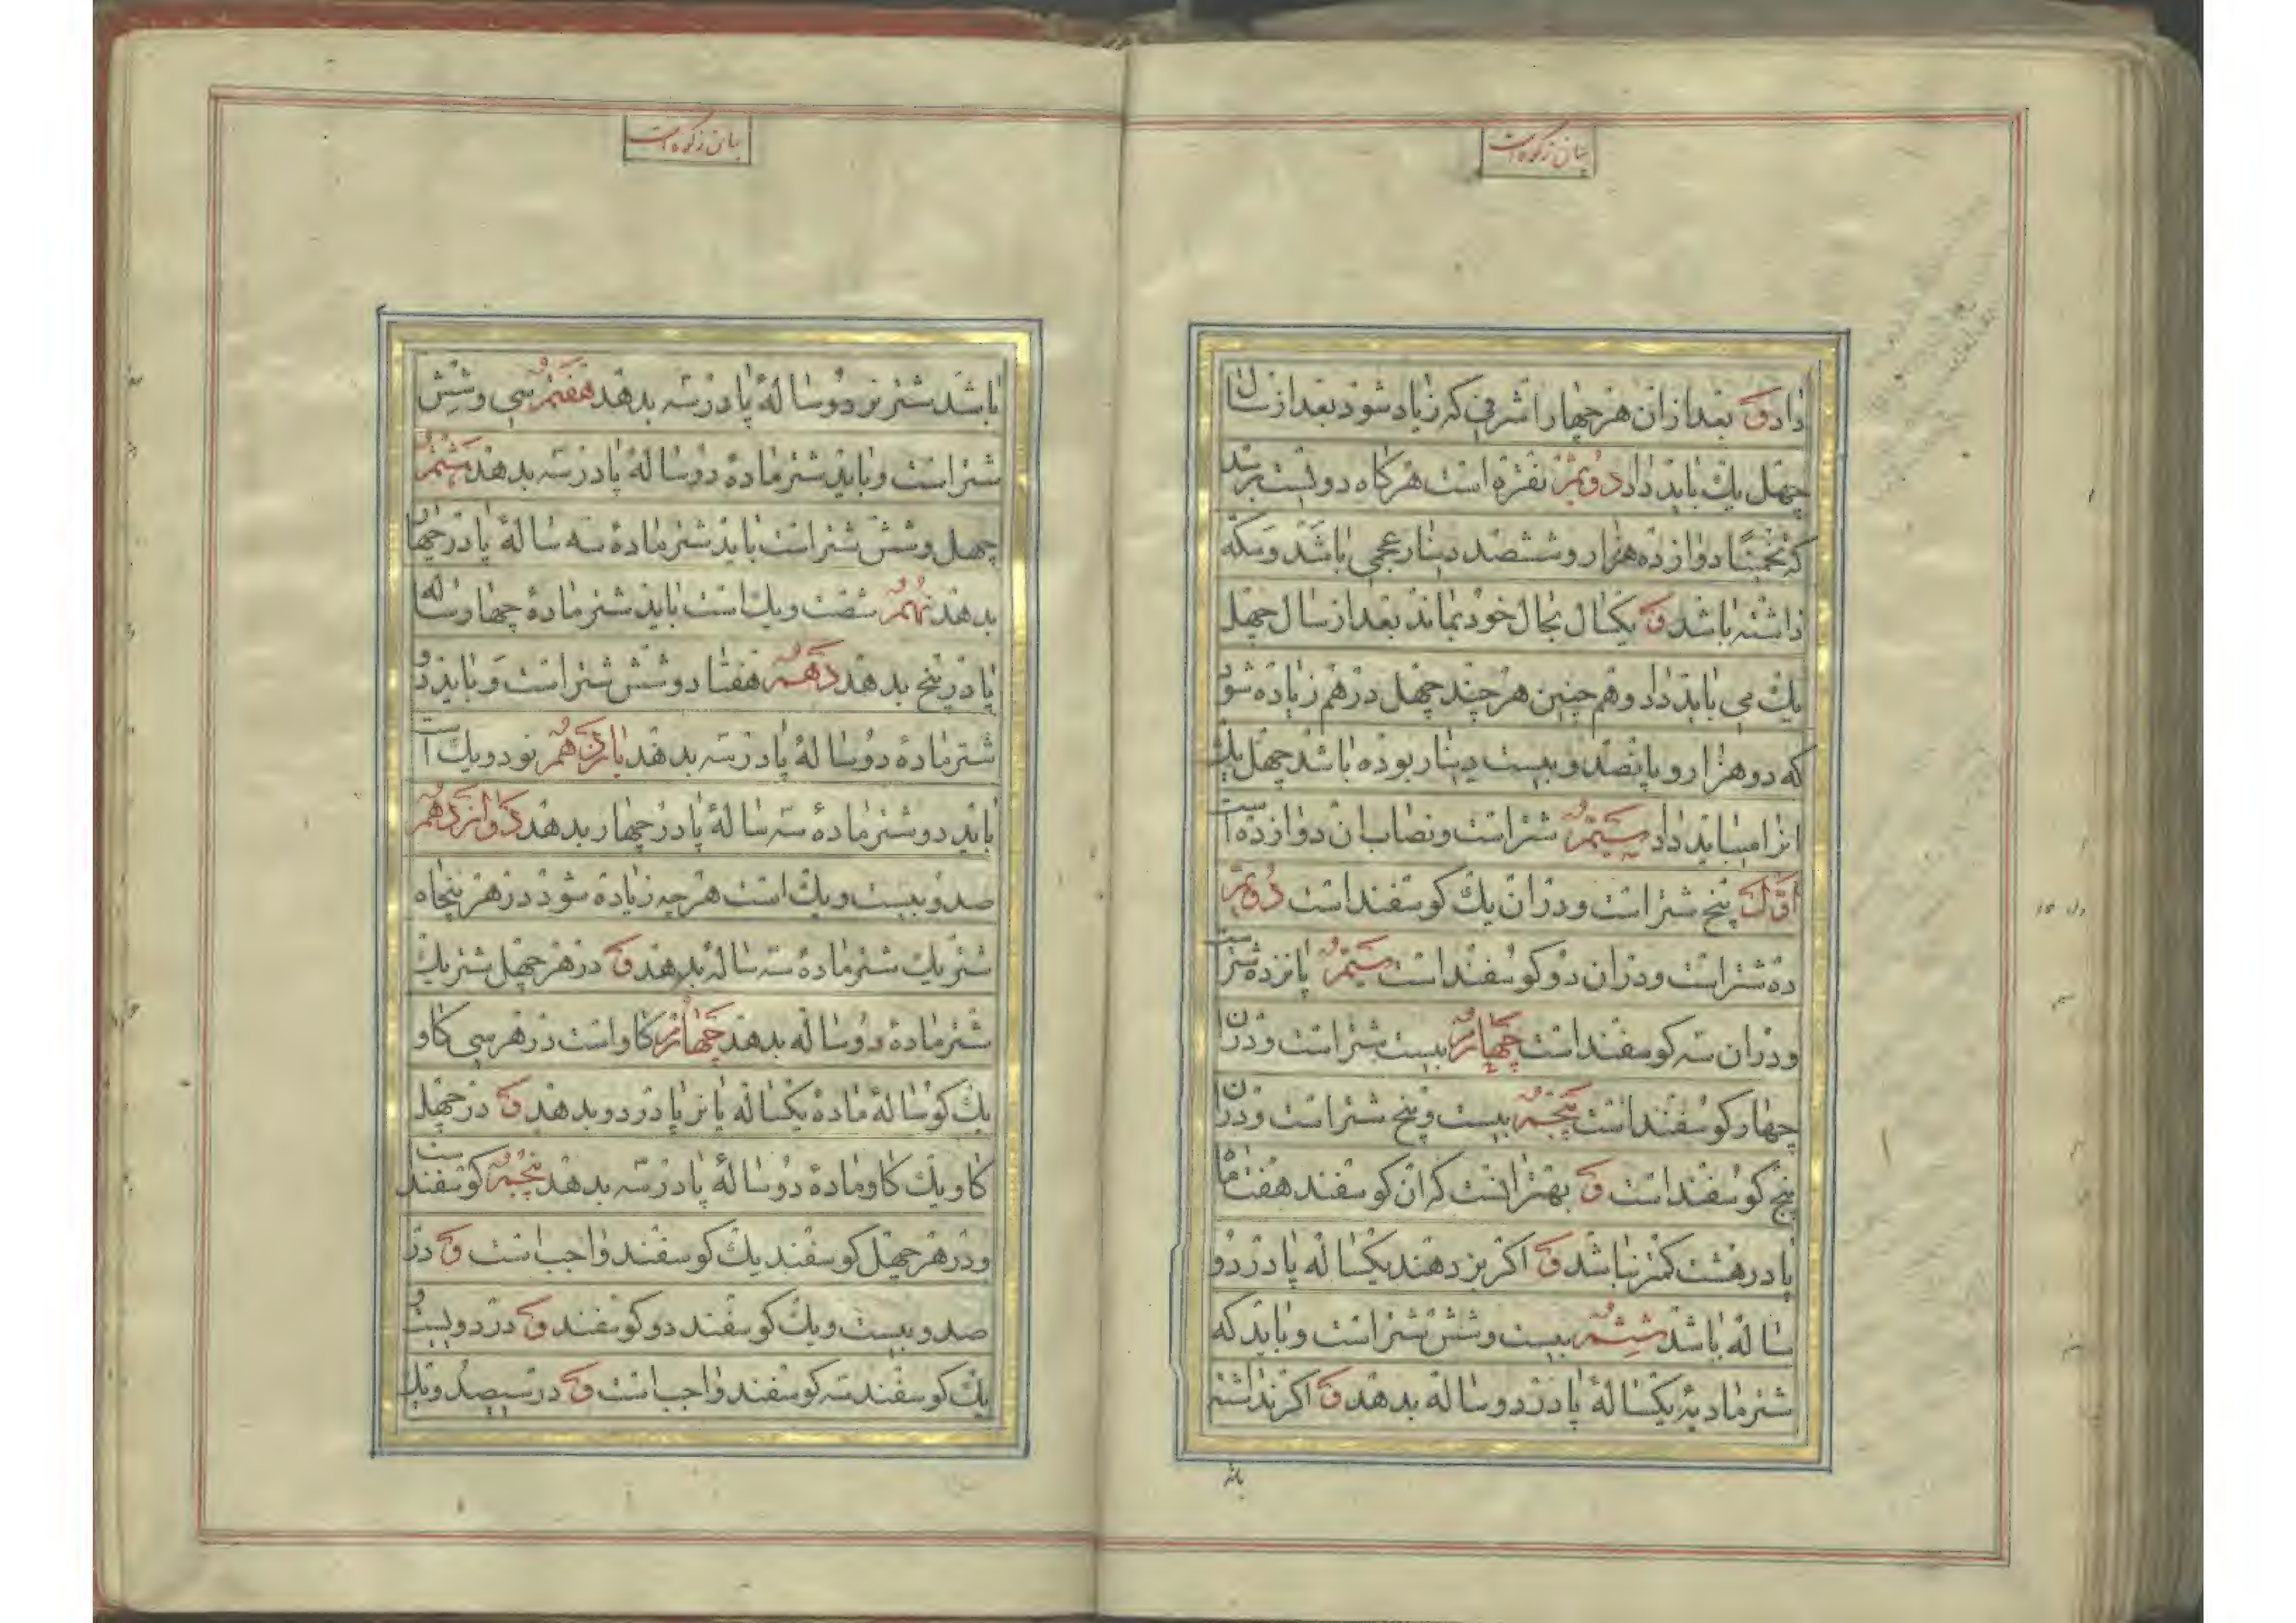 بیان زکوة است
داد ق بعد ازان هر چهار اشرفی که زیاد شود بعد از سال
چهل یك باید داد دویّم نقره است هرکاه دویست برسد
که تخمینًا دوازده هزار و ششصد دینار عجمی باشد و سکه
داشته باشد ق یکسال بحال خود بماند بعد از سال چهل
یك می باید داد و هم چنین هر چند چهل درهم زیاده شود
که دو هزار و پانصد و بیست دینار بوده باشد چهل یك
انرا میباید داد سیّم شتر است و نصاب ان دوازده است
اوّل پنج شتر است و دران یك کوسفند است دویّم
ده شتر است و دران دو کوسفند است سیّم پانزده شتر است
و دران سه کوسفند است چهارم بیست شتر است و دران
چهار کوسفند است پنجم بیست و پنج شتر است و دران
پنج کوسفند است ق بهتر انست که ان کوسفند هفت ماه
پا در هشت کمتر نباشد ق اکر بز دهند یکساله پا در دو
ساله باشد ششم بیست و شش شتر است و باید که
شتر مادیهٔ یکسالهٔ پا در دوساله بدهد ق اکر نداشته
باشد
بیان زکوة است
باشد شتر نر دوسالهٔ پا در سه بدهد هفتم سی و شش
شتر است و باید شتر مادهٔ دوسالهٔ پا در سه بدهد هشتم
چهل و شش شتر است باید شتر مادهٔ سه سالهٔ پا در چهار
بدهد نهم شصت و یك است باید شتر مادهٔ چهار ساله
پا در پنج بدهد دهم هفتاد و شش شتر است و باید دو
شتر مادهٔ دوسالهٔ پا در سه بدهد یازدهم نود و یك است
باید دو شتر مادهٔ سه سالهٔ پا در چهار بدهد دوازدهم
صد و بیست و یك است هر چه زیاده شود در هر پنجاه
شتر یك شتر مادهٔ سه ساله بدهد ق در هر چهل شتر یك
شتر مادهٔ دوساله بدهد چهارم کاو است در هر سی کاو
یك کوسالهٔ مادهٔ یکساله یا نر پا در دو بدهد ق در چهل
کاو یك کاو مادهٔ دوسالهٔ پا در سه بدهد پنجم کوسفند است
و در هر چهل کوسفند یك کوسفند واجب است ق در
صد و بیست و یك کوسفند دو کوسفند ق در دویست و
یك کوسفند سه کوسفند واجب است ق در سیصد و یك